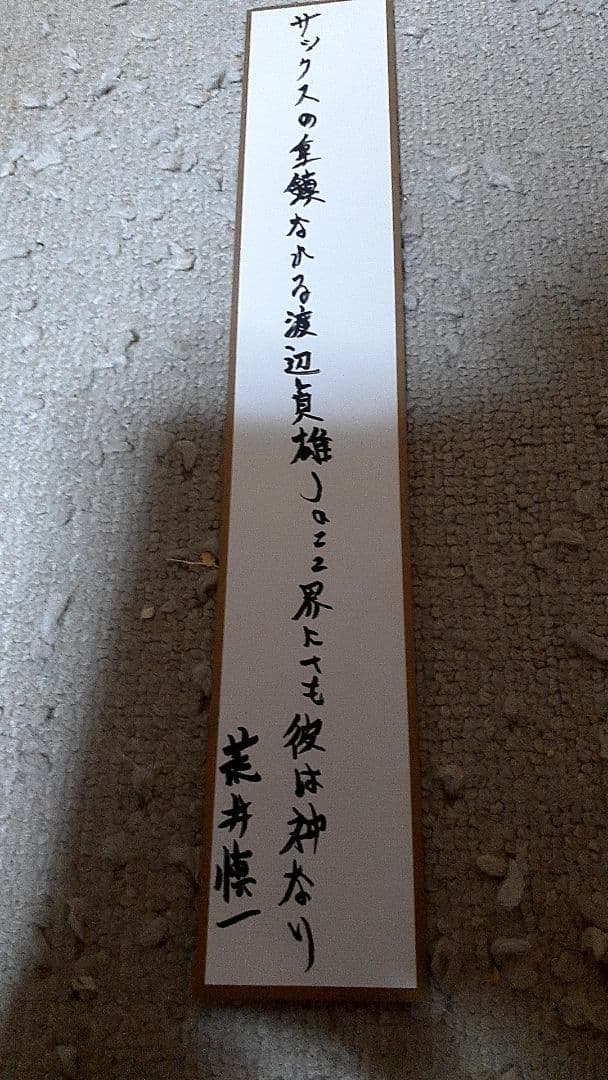 サックスの重鎮なれる渡辺貞雄Jazz界にても彼は神なり
荒井慎一